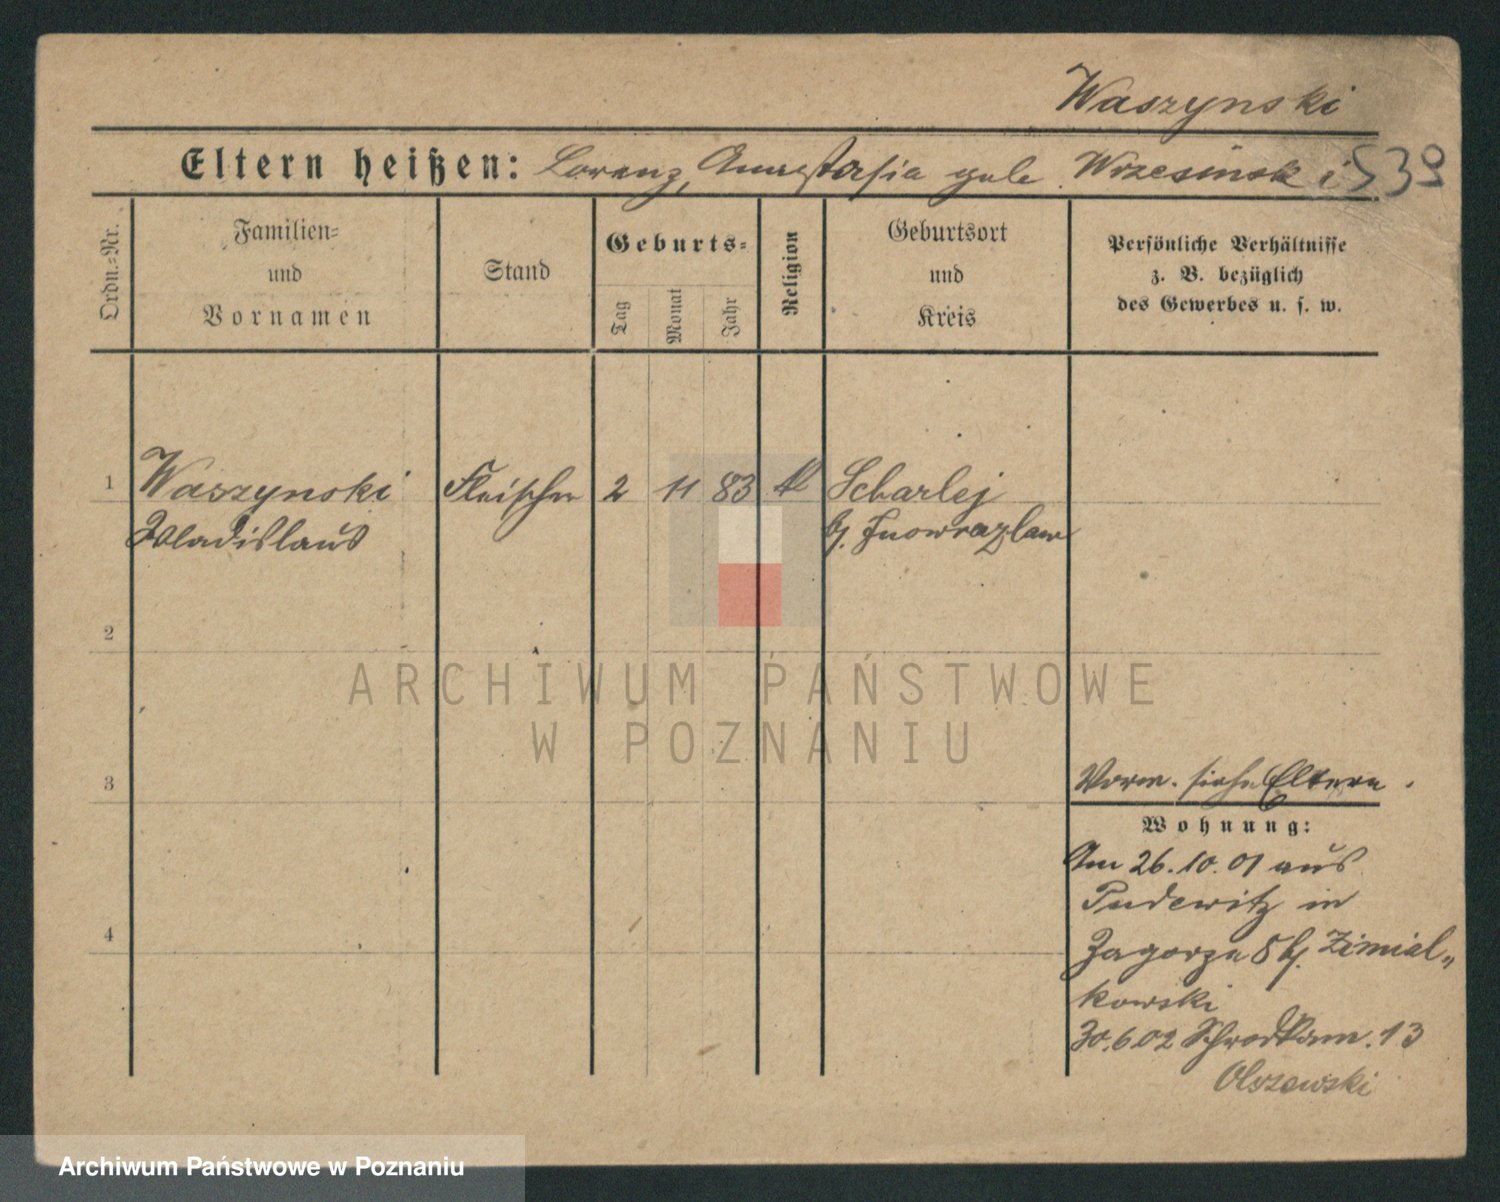 Waszynski
Eltern heißen: Lorenz, Anastasia geb. Wrzesinski 539
Ordn.=Nr.
Familien=
und
Vornamen
Stand
Geburts=
Tag
Monat
Jahr
Religion
Geburtsort
und
Kreis
Persönliche Verhältnisse
z. B. bezüglich
des Gewerbes u. s. w.
1 Waszynski Fleischer 2 11 83 k Scharlej
Wladislaus b/. Inowrazlaw
2
ARCHIWUM PAŃSTWOWE
W POZNANIU
3
Vorm. siehe Eltern.
Wohnung:
Am 26.10.01 aus
Pudewitz in
4
Zagorze 5 b/. Zimial„
kowski
30.6.02 13
Olszewski
Archiwum Państwowe w Poznaniu